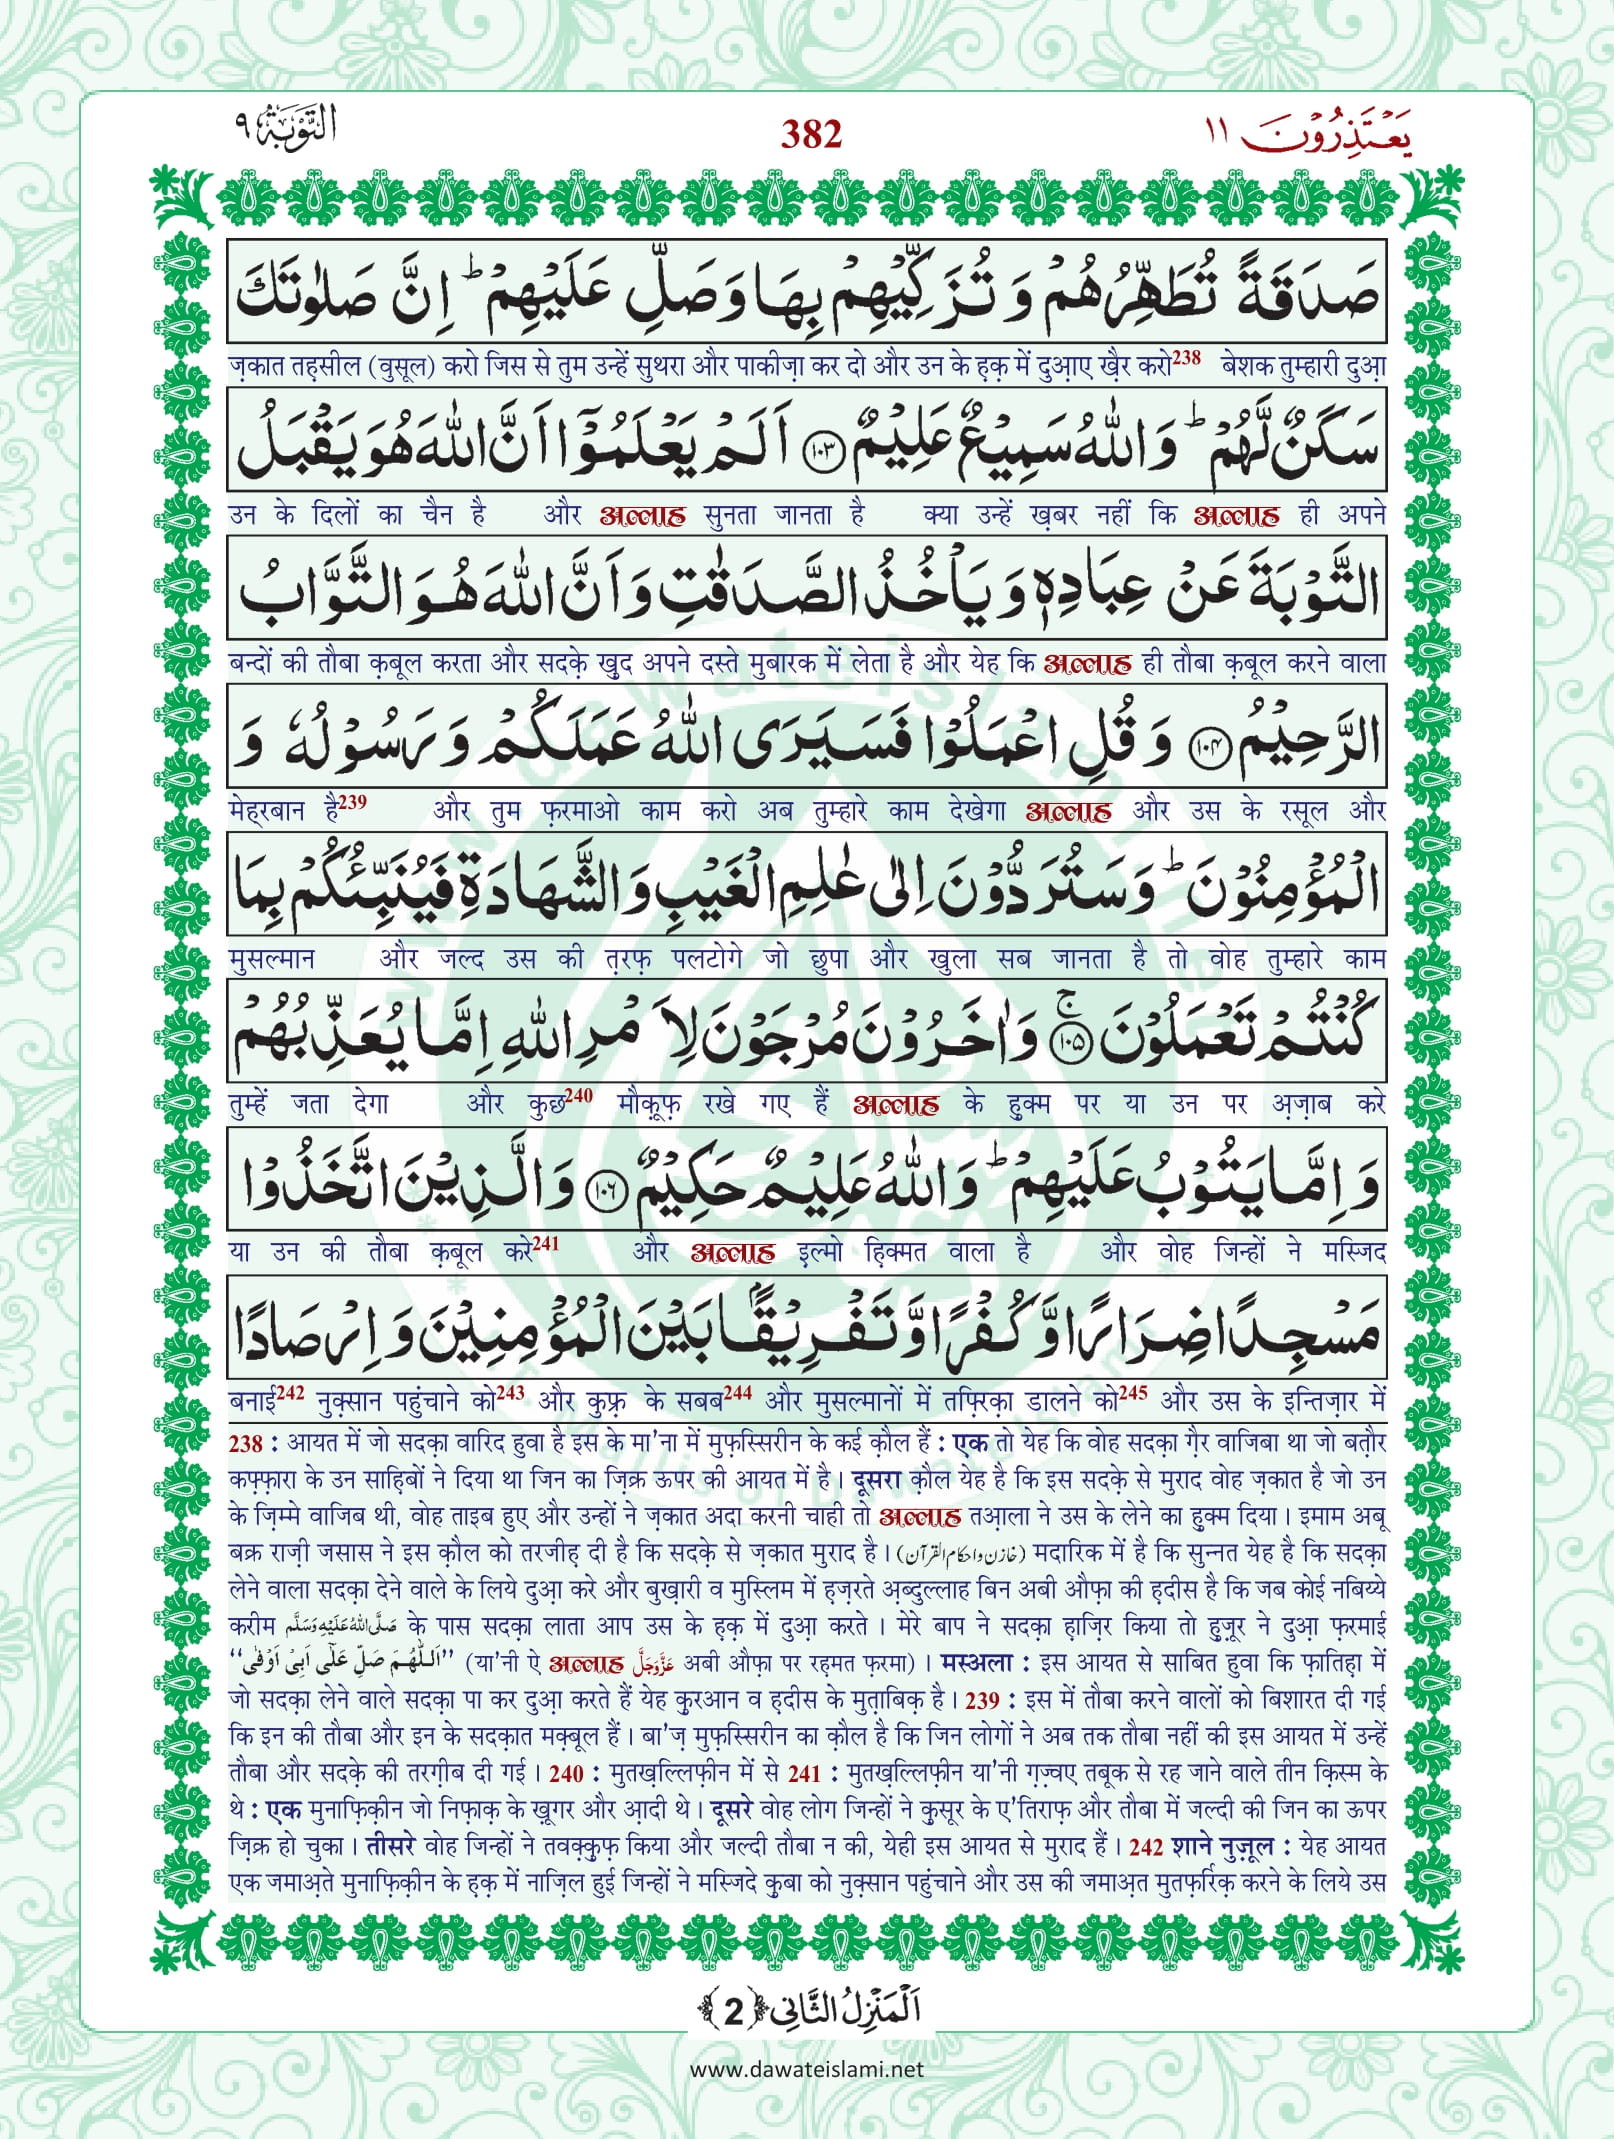 التَّوْبَة ٩
382
يَعْتَذِرُوْنَ ١١
صَدَقَةً تُطَهِّرُهُمْ وَ تُزَكِّيْهِمْ بِهَا وَصَلِّ عَلَيْهِمْ ؕ اِنَّ صَلٰوتَكَ
ज़कात तह़सील (वुसूल) करो जिस से तुम उन्हें सुथरा और पाकीज़ा कर दो और उन के ह़क़ में दुआ़ए ख़ैर करो238 बेशक तुम्हारी दुआ़
سَكَنٌ لَّهُمْ ؕ وَاللّٰهُ سَمِيْعٌ عَلِيْمٌ ﴿۱۰۳﴾ اَلَمْ يَعْلَمُوْۤا اَنَّ اللّٰهَ هُوَ يَقْبَلُ
उन के दिलों का चैन है और अल्लाह सुनता जानता है क्या उन्हें ख़बर नहीं कि अल्लाह ही अपने
التَّوْبَةَ عَنْ عِبَادِهٖ وَ يَاْخُذُ الصَّدَقٰتِ وَ اَنَّ اللّٰهَ هُوَ التَّوَّابُ
बन्दों की तौबा क़बूल करता और सदक़े ख़ुद अपने दस्ते मुबारक में लेता है और येह कि अल्लाह ही तौबा क़बूल करने वाला
الرَّحِيْمُ ﴿۱۰۴﴾ وَ قُلِ اعْمَلُوْا فَسَيَرَى اللّٰهُ عَمَلَكُمْ وَ رَسُوْلُهٗ وَ
मेह्‌रबान है239 और तुम फ़रमाओ काम करो अब तुम्हारे काम देखेगा अल्लाह और उस के रसूल और
الْمُؤْمِنُوْنَ ؕ وَ سَتُرَدُّوْنَ اِلٰى عٰلِمِ الْغَيْبِ وَ الشَّهَادَةِ فَيُنَبِّئُكُمْ بِمَا
मुसल्मान और जल्द उस की त़रफ़ पलटोगे जो छुपा और खुला सब जानता है तो वोह तुम्हारे काम
كُنْتُمْ تَعْمَلُوْنَ ۚ﴿۱۰۵﴾ وَ اٰخَرُوْنَ مُرْجَوْنَ لِاَمْرِ اللّٰهِ اِمَّا يُعَذِّبُهُمْ
तुम्हें जता देगा और कुछ240 मौक़ूफ़ रखे गए हैं अल्लाह के हुक्म पर या उन पर अ़ज़ाब करे
وَ اِمَّا يَتُوْبُ عَلَيْهِمْ ؕ وَاللّٰهُ عَلِيْمٌ حَكِيْمٌ ﴿۱۰۶﴾ وَالَّذِيْنَ اتَّخَذُوْا
या उन की तौबा क़बूल करे241 और अल्लाह इ़ल्मो ह़िक्मत वाला है और वोह जिन्हों ने मस्जिद
مَسْجِدًا ضِرَارًا وَّ كُفْرًا وَّ تَفْرِيْقًۢا بَيْنَ الْمُؤْمِنِيْنَ وَ اِرْصَادًا
बनाई242 नुक़्सान पहुंचाने को243 और कुफ़्र के सबब244 और मुसल्मानों में तफ़्रिक़ा डालने को245 और उस के इन्तिज़ार में
238 : आयत में जो सदक़ा वारिद हुवा है इस के मा'ना में मुफ़स्सिरीन के कई क़ौल हैं : एक तो येह कि वोह सदक़ा ग़ैर वाजिबा था जो बत़ौर
कफ़्फ़ारा के उन साहि़बों ने दिया था जिन का ज़िक्र ऊपर की आयत में है। दूसरा क़ौल येह है कि इस सदक़े से मुराद वोह ज़कात है जो उन
के ज़िम्मे वाजिब थी, वोह ताइब हुए और उन्हों ने ज़कात अदा करनी चाही तो अल्लाह तआ़ला ने उस के लेने का हुक्म दिया। इमाम अबू
बक्र राज़ी जसास ने इस क़ौल को तरजीह़ दी है कि सदक़े से ज़कात मुराद है। (خازن و احکام القرآن) मदारिक में है कि सुन्नत येह है कि सदक़ा
लेने वाला सदक़ा देने वाले के लिये दुआ़ करे और बुख़ारी व मुस्लिम में ह़ज़रते अ़ब्दुल्लाह बिन अबी औफ़ा की ह़दीस है कि जब कोई नबिय्ये
करीम صَلَّى اللّٰهُ عَلَيْهِ وَسَلَّم के पास सदक़ा लाता आप उस के ह़क़ में दुआ़ करते। मेरे बाप ने सदक़ा ह़ाज़िर किया तो हु़ज़ूर ने दुआ़ फ़रमाई
‘‘اَللّٰهُمَ صَلِّ عَلٰى اَبِىْ اَوْفٰى’’ (या'नी ऐ अल्लाह عَزَّوَجَلَّ अबी औफ़ा पर रह़मत फ़रमा)। मस्अला : इस आयत से साबित हुवा कि फ़ातिह़ा में
जो सदक़ा लेने वाले सदक़ा पा कर दुआ़ करते हैं येह क़ुरआन व ह़दीस के मुत़ाबिक़ है। 239 : इस में तौबा करने वालों को बिशारत दी गई
कि इन की तौबा और इन के सदक़ात मक़्बूल हैं। बा'ज़ मुफ़स्सिरीन का क़ौल है कि जिन लोगों ने अब तक तौबा नहीं की इस आयत में उन्हें
तौबा और सदक़े की तरग़ीब दी गई। 240 : मुतख़ल्लिफ़ीन में से 241 : मुतख़ल्लिफ़ीन या'नी ग़ज़्वए तबूक से रह जाने वाले तीन क़िस्म के
थे : एक मुनाफ़िक़ीन जो निफ़ाक़ के ख़ूगर और आ़दी थे। दूसरे वोह लोग जिन्हों ने क़ुसूर के ए'तिराफ़ और तौबा में जल्दी की जिन का ऊपर
ज़िक्र हो चुका। तीसरे वोह जिन्हों ने तवक़्क़ुफ़ किया और जल्दी तौबा न की, येही इस आयत से मुराद हैं। 242 शाने नुज़ूल : येह आयत
एक जमाअ़ते मुनाफ़िक़ीन के ह़क़ में नाज़िल हुई जिन्हों ने मस्जिदे क़ुबा को नुक़्सान पहुंचाने और उस की जमाअ़त मुतफ़र्रिक़ करने के लिये उस
اَلْمَنْزِلُ الثَّانِى ﴿2﴾
www.dawateislami.net